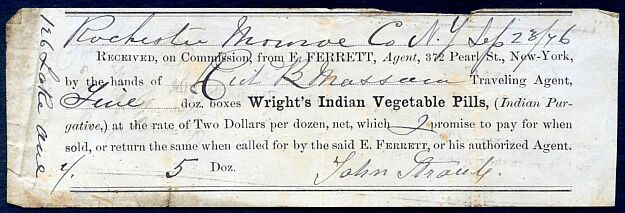 Rochester Monroe Co N.Y Sep 28/76
RECEIVED, on Commission, from E. FERRETT, Agent, 372 Pearl St., New-York,
by the hands of B Traveling Agent,
Five doz. boxes Wright's Indian Vegetable Pills, (Indian Pur-
gative,) at the rate of Two Dollars per dozen, net, which I promise to pay for when
sold, or return the same when called for by the said E. FERRETT, or his authorized Agent.
5 Doz. John
126 Lake Ave